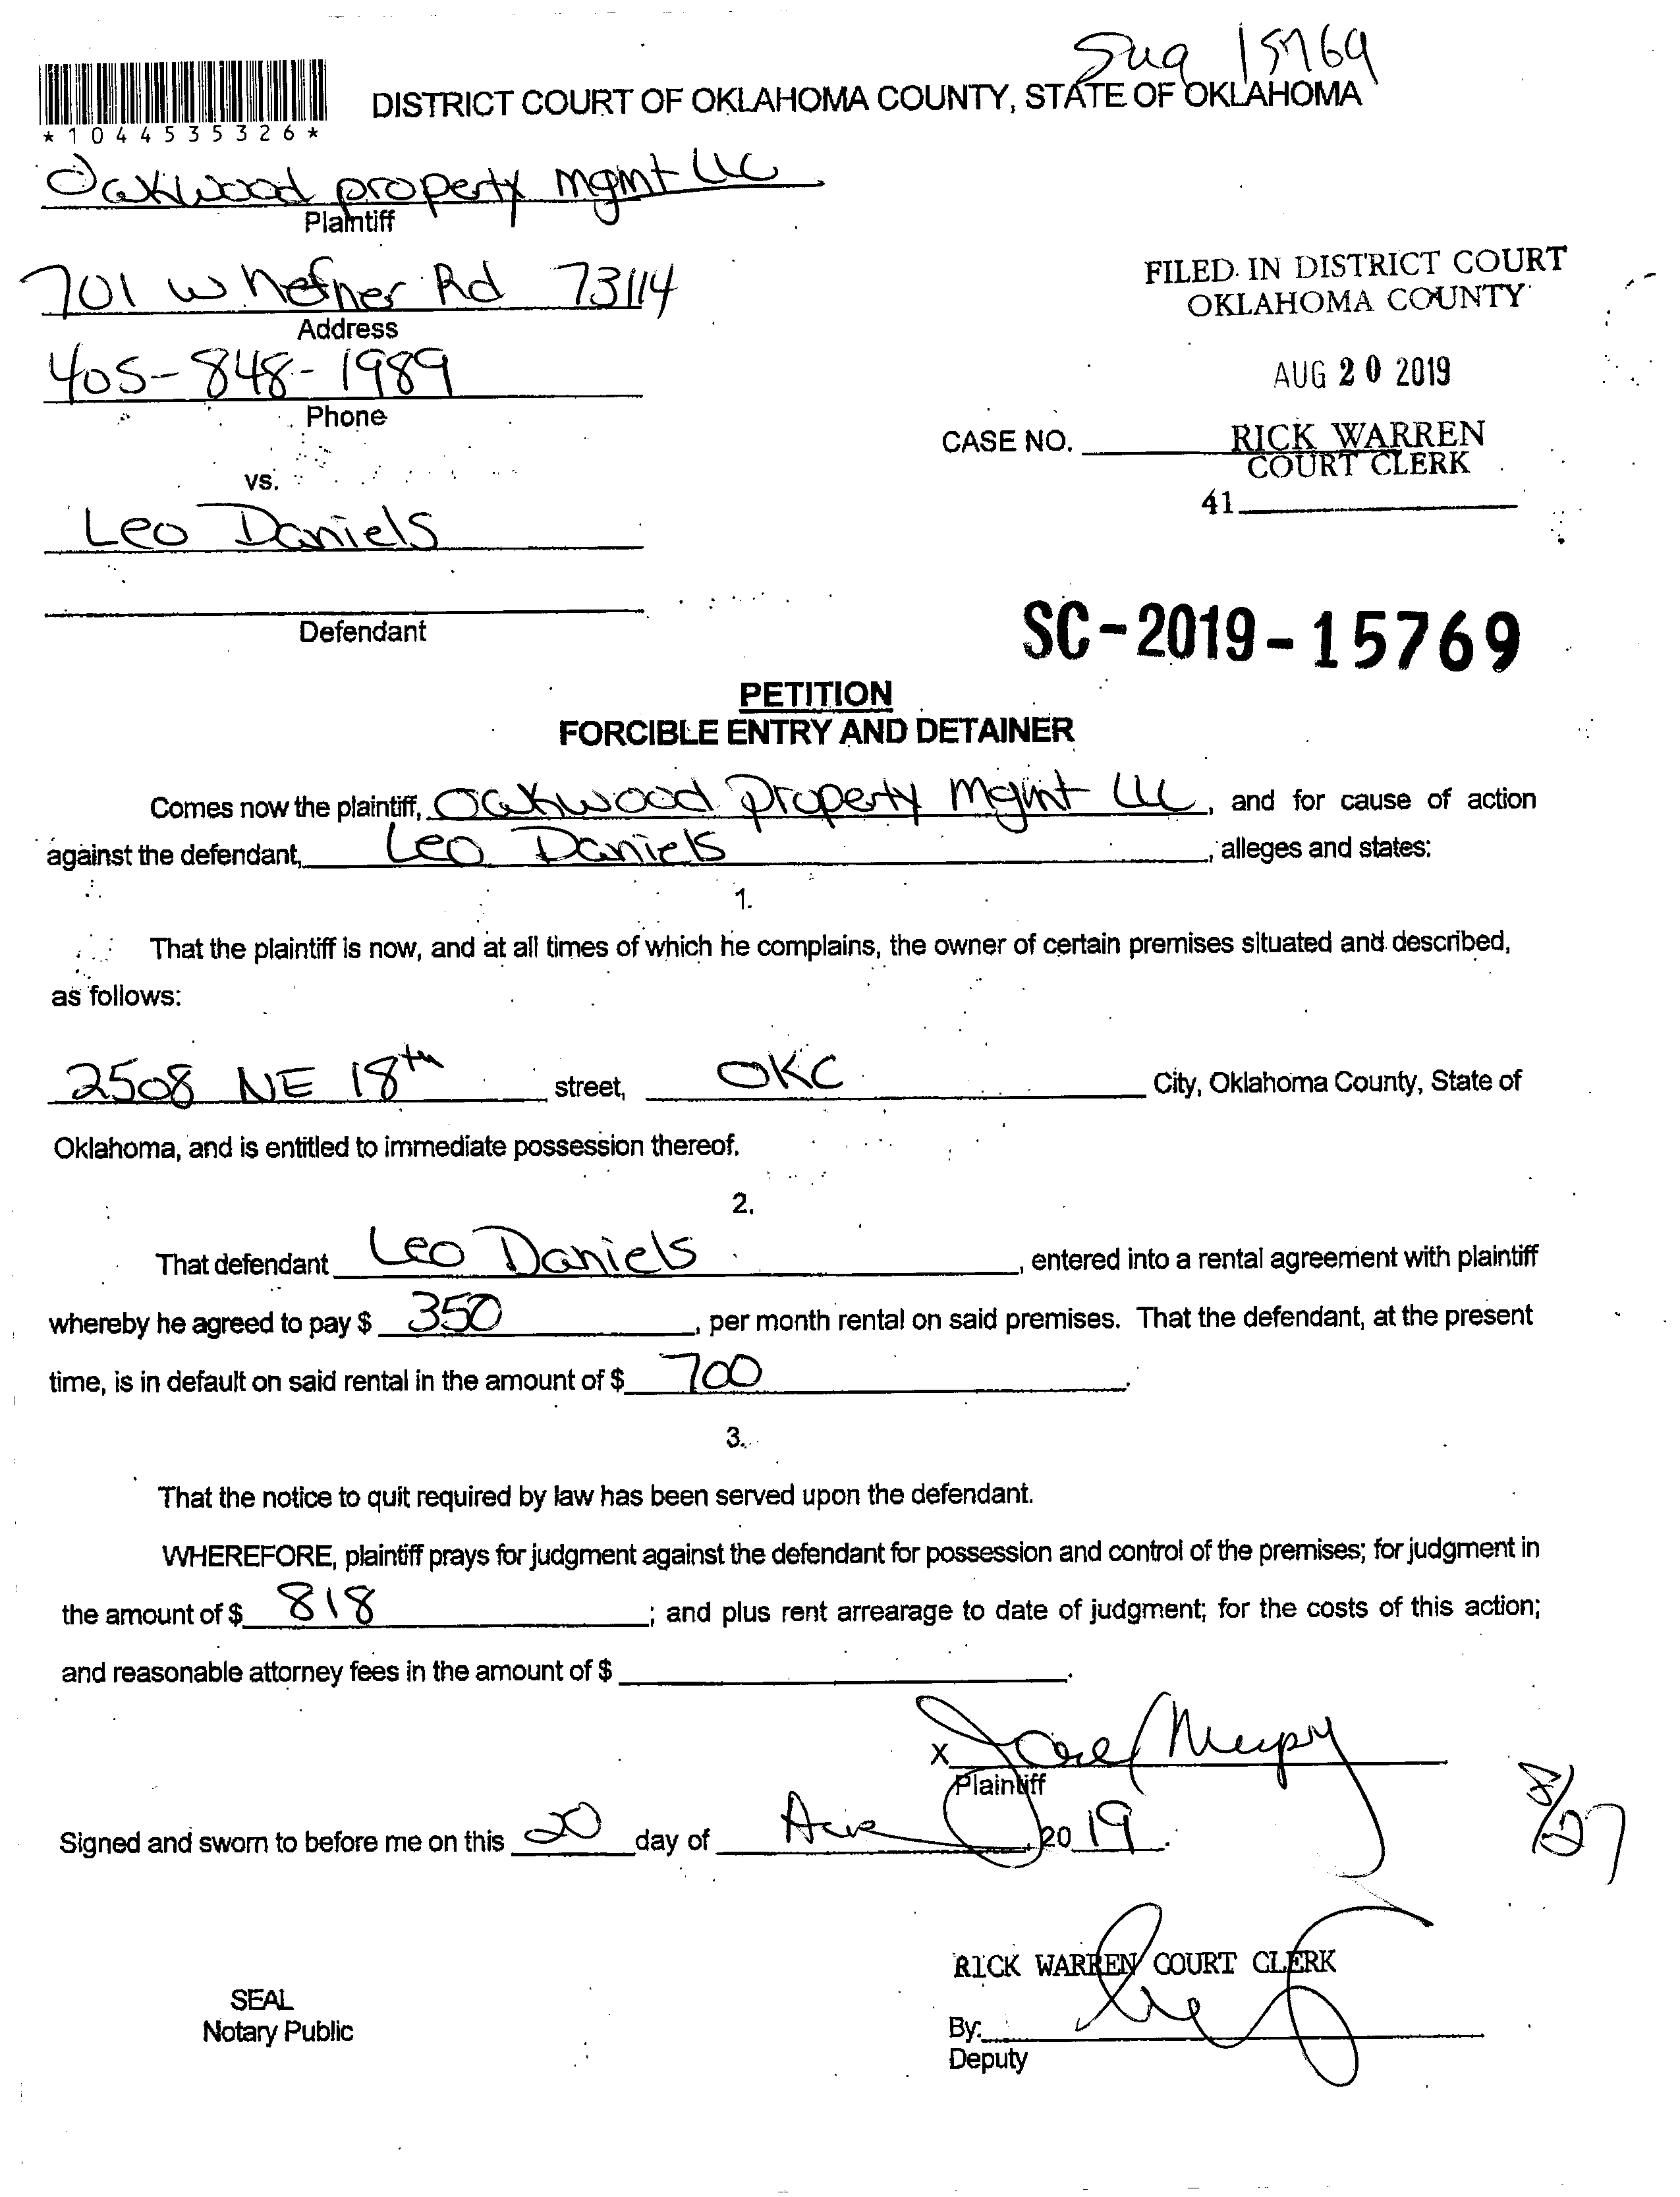 15769
DISTRICT COURT OF OKLAHOMA COUNTY, STATE OF OKLAHOMA
*1044535326*
Oakwood property mgmt LLC
Plaintiff
701 W Hefner Rd 73114
Address
405-848-1989
Phone
FILED IN DISTRICT COURT
OKLAHOMA COUNTY
AUG 20 2019
RICK WARREN
COURT CLERK
41
CASE NO.
vs.
Leo Daniels
Defendant
SC-2019-15769
PETITION
FORCIBLE ENTRY AND DETAINER
Comes now the plaintiff, Oakwood Property Mgmt LLC, and for cause of action
against the defendant, Leo Daniels, alleges and states:
1.
That the plaintiff is now, and at all times of which he complains, the owner of certain premises situated and described,
as follows:
2508 NE 18th street, OKC City, Oklahoma County, State of
Oklahoma, and is entitled to immediate possession thereof.
2.
That defendant Leo Daniels, entered into a rental agreement with plaintiff
whereby he agreed to pay $ 350, per month rental on said premises. That the defendant, at the present
time, is in default on said rental in the amount of $ 700.
3.
That the notice to quit required by law has been served upon the defendant.
WHEREFORE, plaintiff prays for judgment against the defendant for possession and control of the premises; for judgment in
the amount of $ 818; and plus rent arrearage to date of judgment; for the costs of this action;
and reasonable attorney fees in the amount of $.
X
Plaintiff
8/27
Signed and sworn to before me on this 20 day of, 2019.
RICK WARREN COURT CLERK
SEAL
Notary Public
By:
Deputy